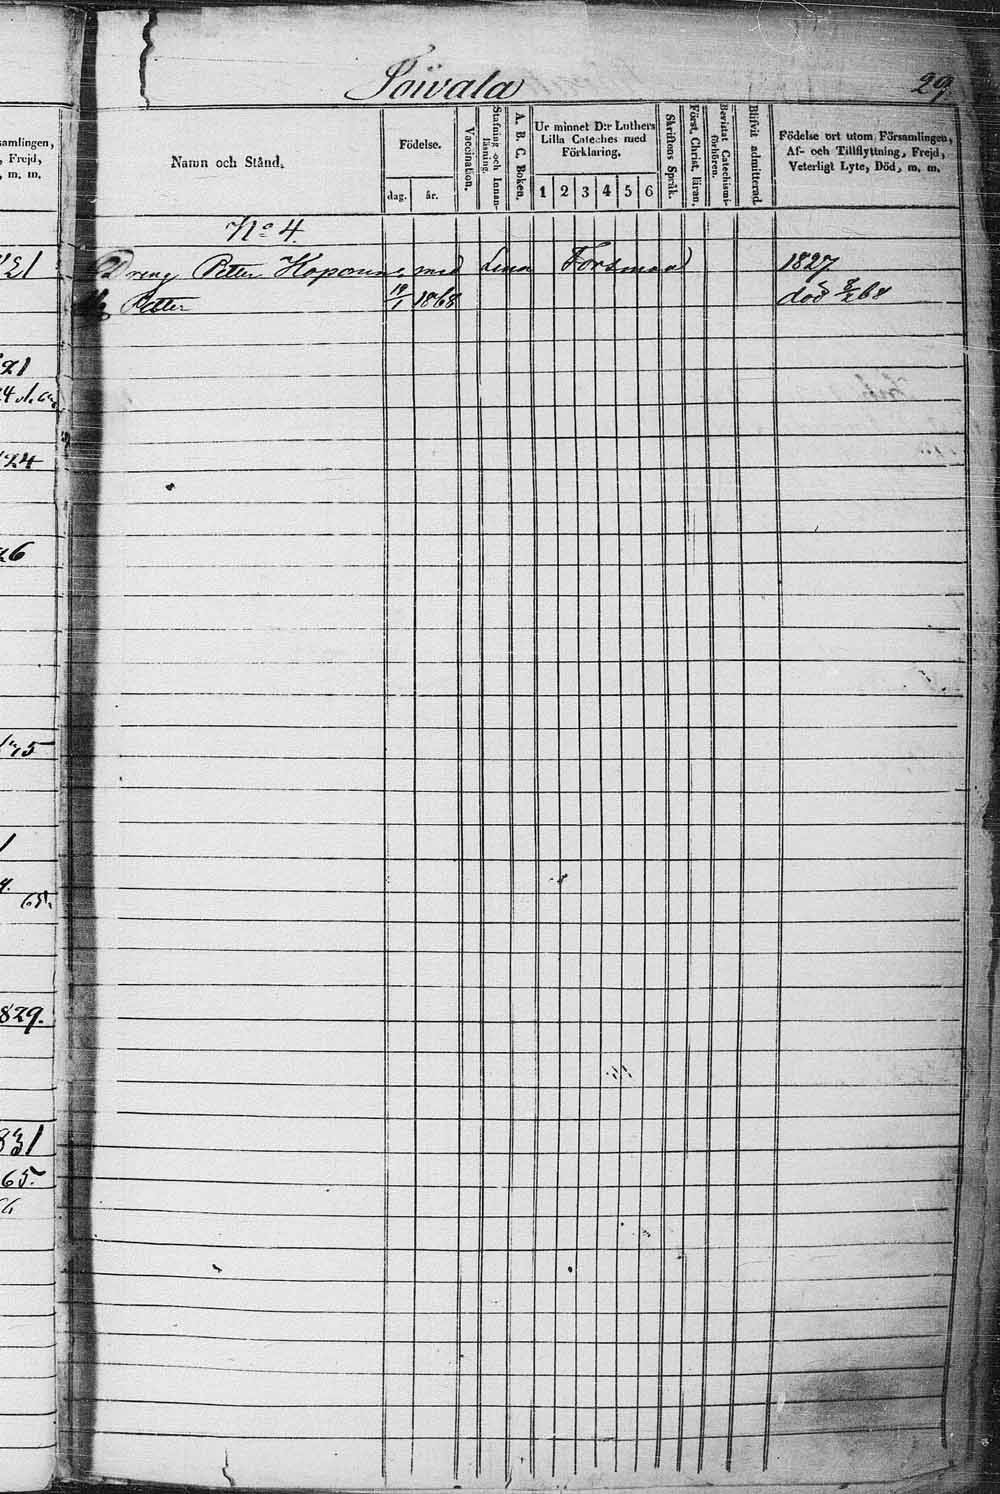 Toivala
29
samlingen,
, Frejd,
, m. m.
Namn och Stånd.
Födelse.
dag.
år.
Vaccination.
Stafning och Innan-
läsning.
A. B. C. Boken.
Ur minnet D:r Luthers
Lilla Cateches med
Förklaring.
1 2 3 4 5 6
Skriftens Språk.
Först. Christ. läran.
Bevistat Catechismi-
förhören.
Blifvit admitterad.
Födelse ort utom Församlingen,
Af- och Tillflyttning, Frejd,
Veterligt Lyte, Död, m. m.
No 4.
Dreng Petter med Lena Forsman 1827
Petter 19/1 1868 död 68
21
24
26
65
829.
831
65.